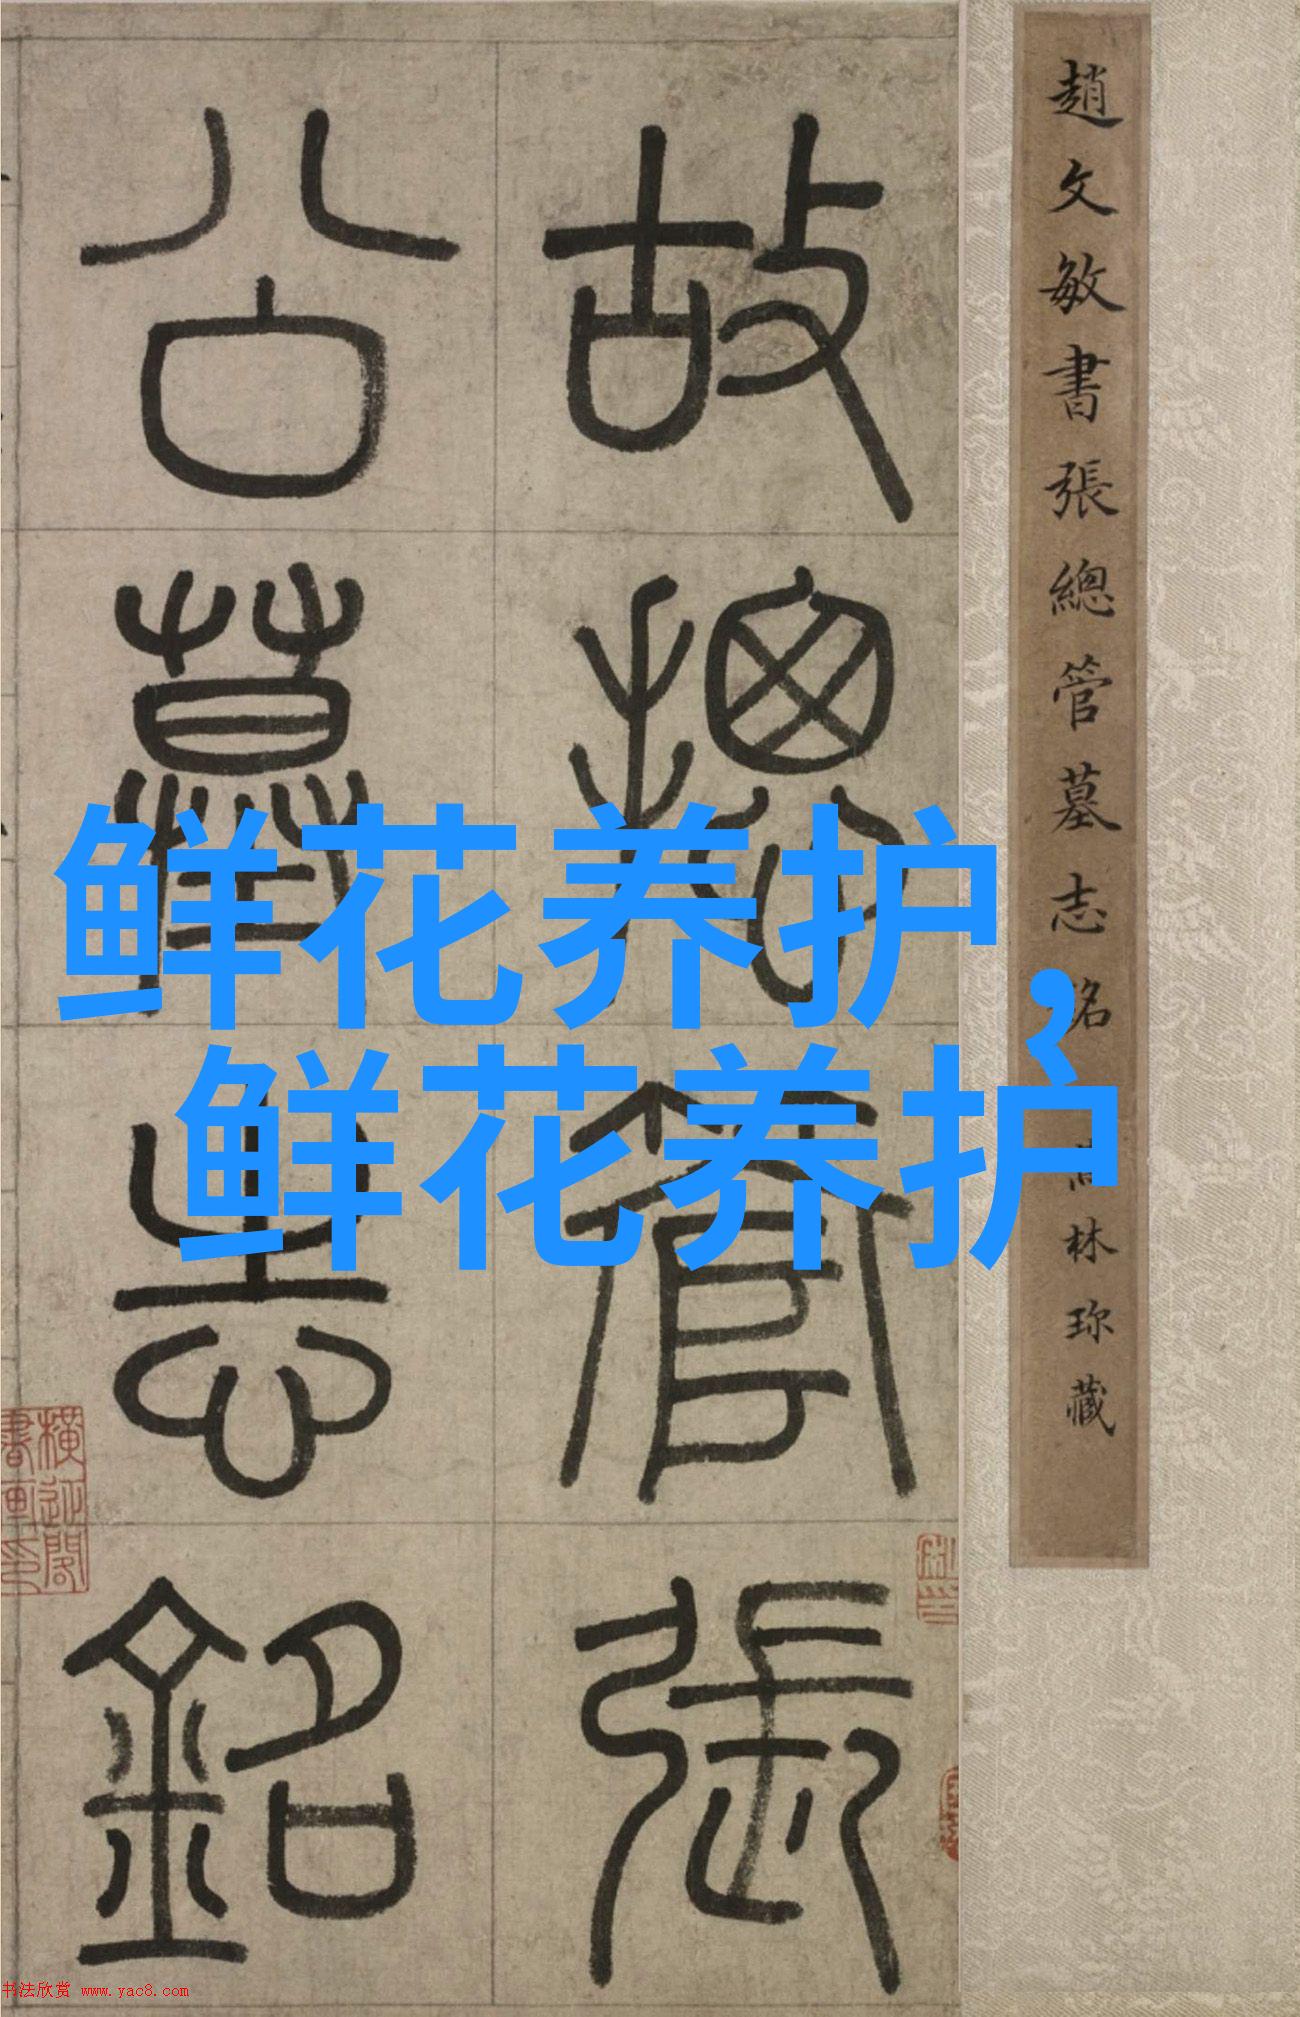 趙文敏書張總管墓志銘
林珎藏
故總管張
公墓志銘
鲜花养护，
鲜花养护
書法欣赏 www.yac8.com